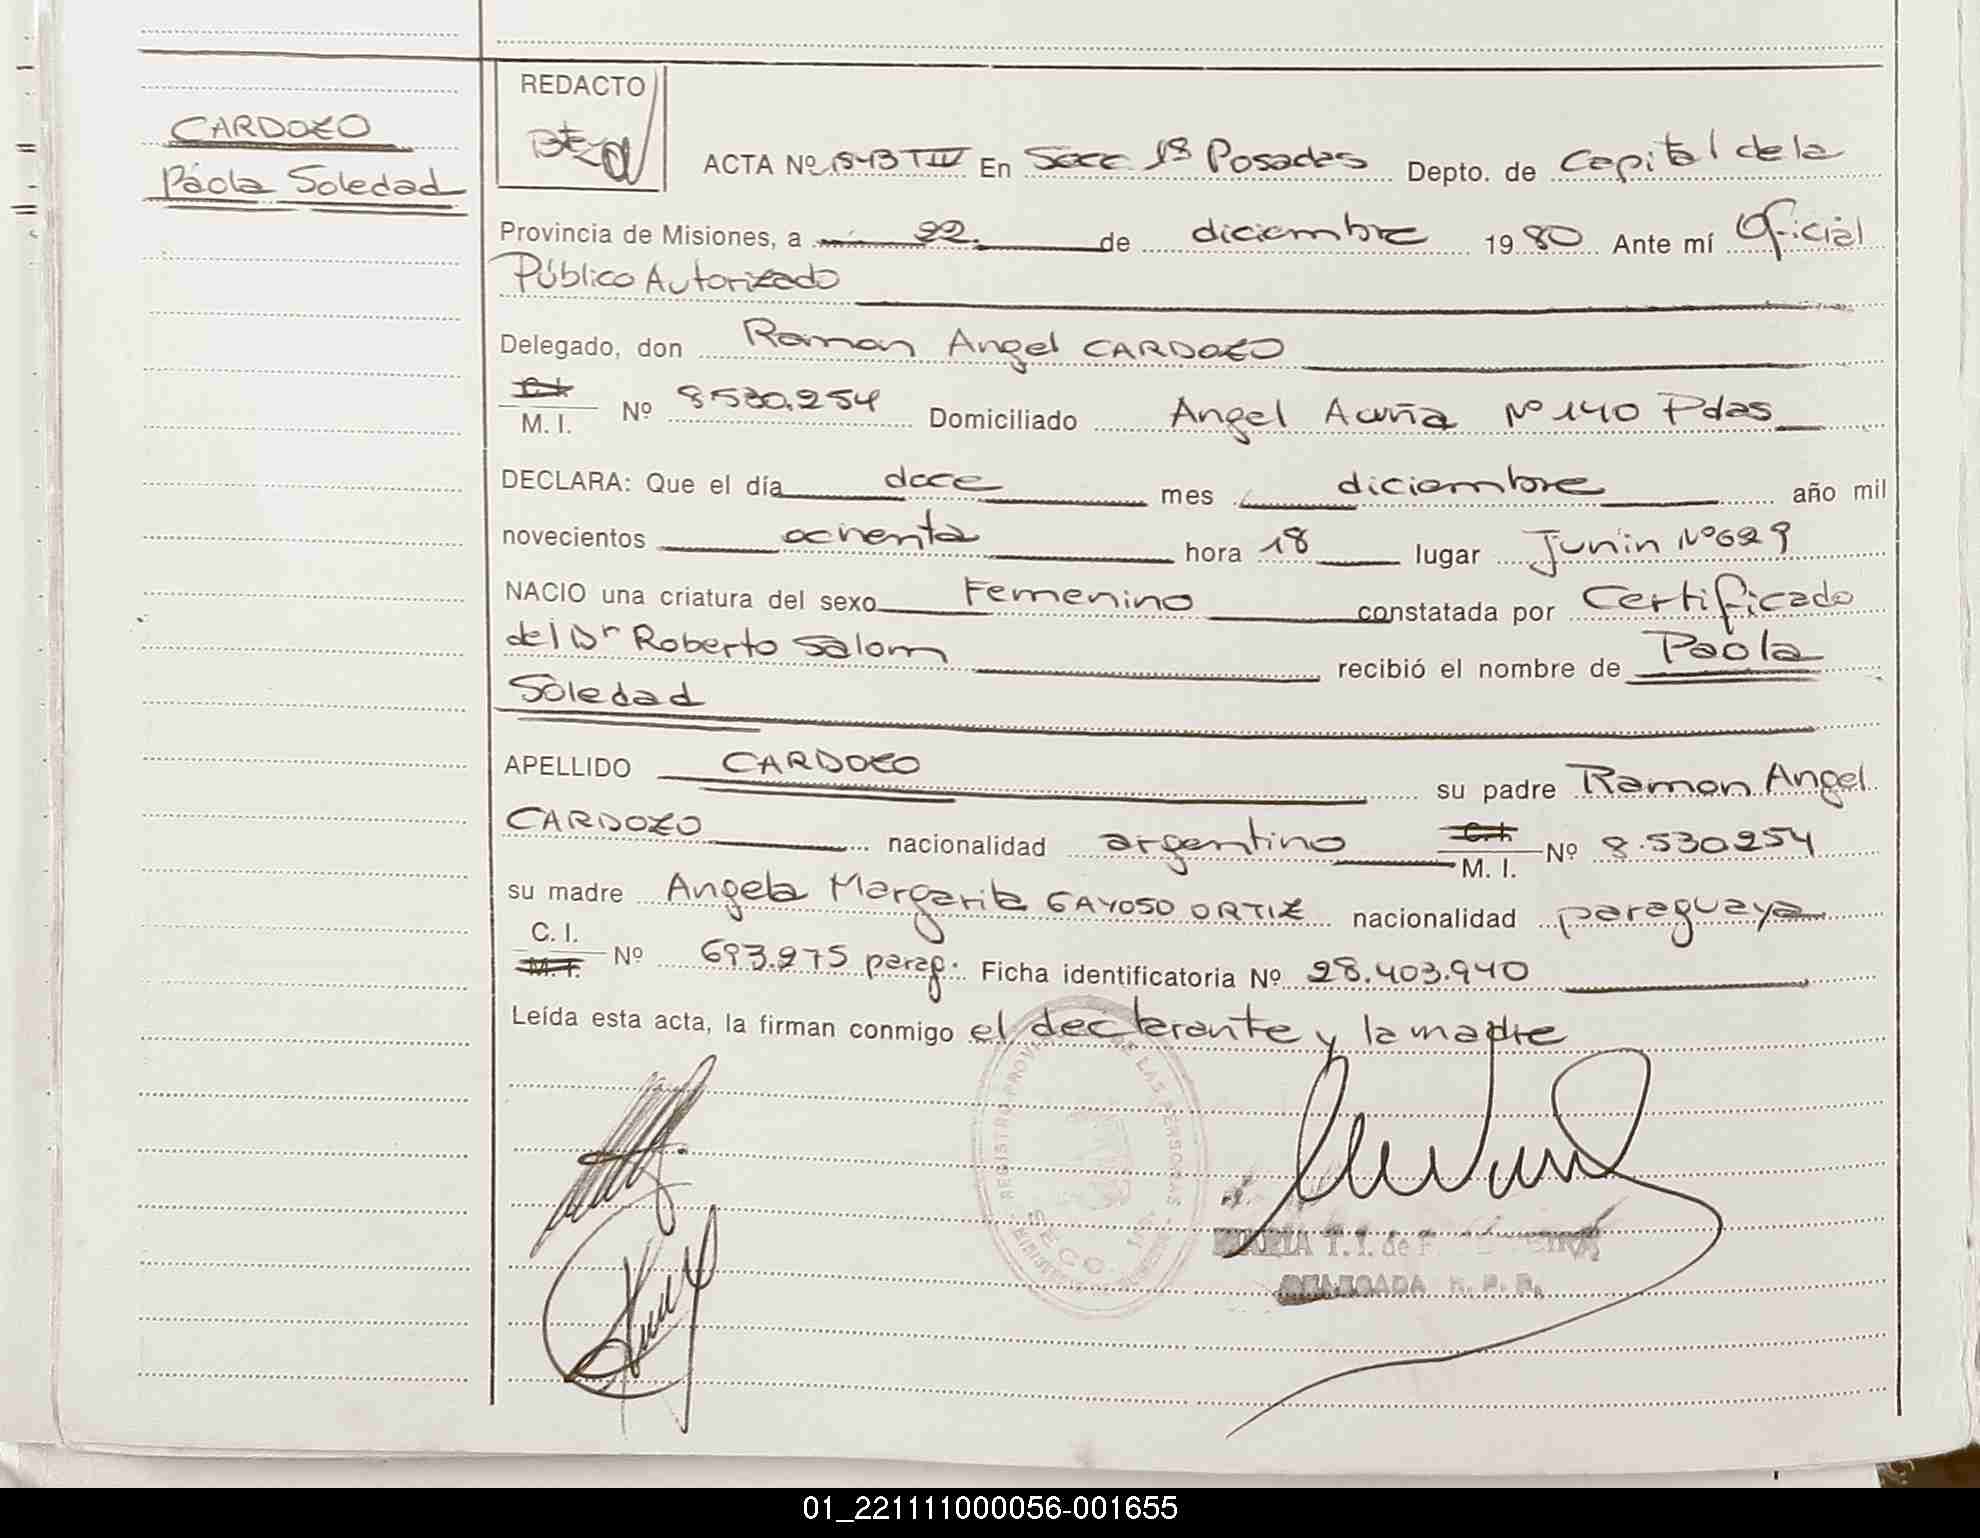 CARDOZO
Paola Soledad
REDACTO
ACTA Nº 1843 T IV En Secc 1ª Posadas Depto. de Capital de la
Provincia de Misiones, a 22 de diciembre 1980 Ante mí Oficial
Público Autorizado
Delegado, don Ramon Angel CARDOZO
C.I. M. I. Nº 8.530.254 Domiciliado Angel Acuña Nº 140 Pdas
DECLARA: Que el día doce mes diciembre año mil
novecientos ochenta hora 18 lugar Junin Nº 629
NACIO una criatura del sexo Femenino constatada por Certificado
del Dr Roberto Salom recibió el nombre de Paola
Soledad
APELLIDO CARDOZO su padre Ramon Angel
CARDOZO nacionalidad argentino C.I. M. I. Nº 8.530.254
su madre Angela Margarita GAYOSO ORTIZ nacionalidad paraguaya
C. I. M. I. Nº 693.275 parag. Ficha identificatoria Nº 28.403.940
Leída esta acta, la firman conmigo el declarante y la madre
REGISTRO PROVINCIAL DE LAS PERSONAS
MARIA T. I. de
DELEGADA R. P. P.
01_221111000056-001655